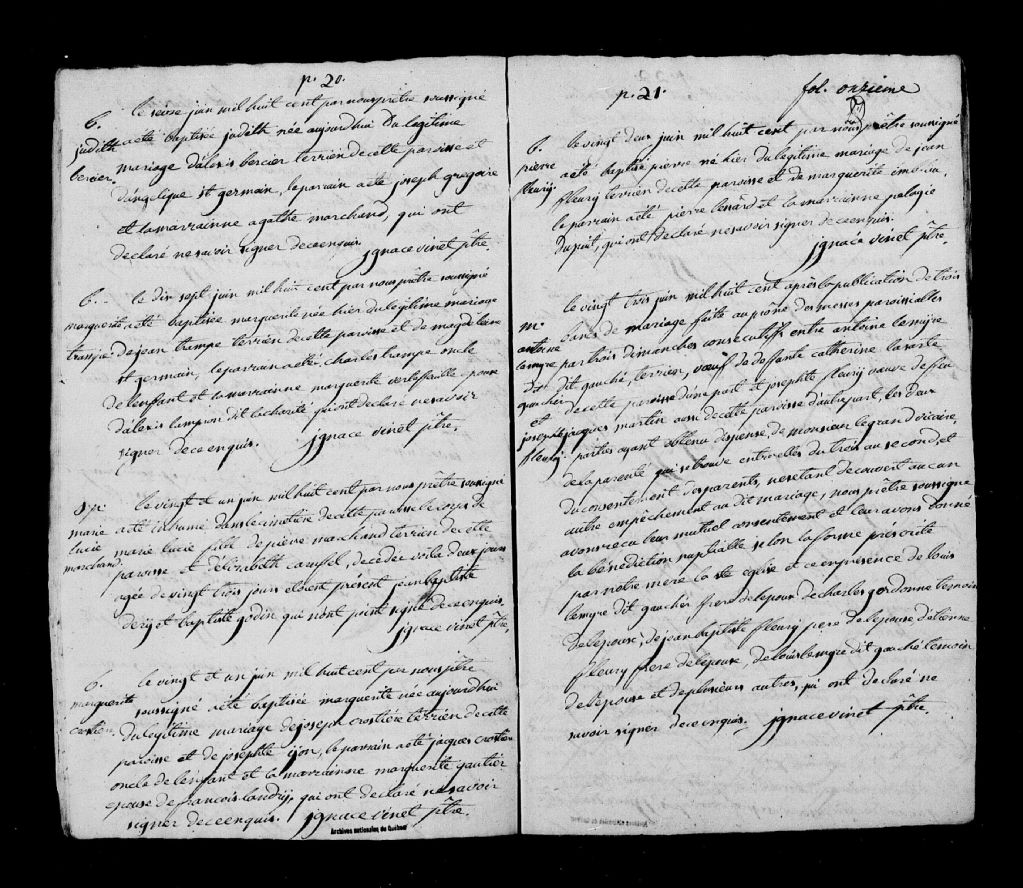 p. 20.
B.
judith
bercier
le seize juin mil huit cent par nous prêtre soussigné
a été baptisée judith née aujourdhui du legitime
mariage dalexis bercier terrien de cette paroisse et
d'angelique st germain, le parain a été joseph gregoire
et la marrainne agathe marchand, qui ont
declaré ne savoir signer de ce enquis.
jgnace vinet ptre.
B.
marguerite
trampe
le dix sept juin mil huit cent par nous prêtre soussigné
a été baptisée marguerite née hier du légitime mariage
de jean trampe terrien de cette paroisse et de magdeleine
st germain, le parrain a été charles trampe oncle
de lenfant et la marrainne marguerite epouse
d'alexis lampron dit lacharité qui ont declaré ne savoir
signer de ce enquis. jgnace vinet ptre.
S.
marie
lucie
marchand
le vingt et un juin mil huit cent par nous prêtre soussigné
a été inhumé dans le cimetiere de cette paroisse le corps de
marie lucie fille de marchand terrien de cette
paroisse et d'elizabeth campbel, decedée deux jours
agée de vingt trois jours etoient présent jean baptiste
dery et baptiste godin qui nont point signé de ce enquis.
jgnace vinet ptre.
B.
marguerite
le vingt et un juin mil huit cent par nous ptre
soussigné a été baptisée marguerite née aujourdhui
du legitime mariage de joseph terrien de cette
paroisse et de josephte le parrain a été jacques
oncle de lenfant et la marrainne marguerite gautier
epouse de francois landry, qui ont declaré ne savoir
signer de ce enquis. jgnace vinet ptre.
Archives nationales du Québec
p. 21.
fol. onzieme
B.
pierre
fleury
le vingt deux juin mil huit cent par nous prêtre soussigné
a été baptisé pierre né hier du legitime mariage de jean
fleury terrien de cette paroisse et de marguerite
le parrain a été pierre benard et la marrainne pelagie
Dupuit, qui ont declaré ne savoir signer de ce enquis.
jgnace vinet ptre.
m.
antoine
lemyre
dit
gauché
et
josephte
fleury
le vingt trois juin mil huit cent après la publication de trois
bans de mariage faite au prône des messes paroissialles
par trois dimanches consecutiffs entre antoine lemyre
dit gauché, terrien, vœuf de deffunte catherine
de cette paroisse dune part et josephte fleury veuve de feu
jacques martin aussi de cette paroisse d'autre part, les deux
parties ayant obtenu dispense, de monsieur le grand vicaire,
de la parenté qui se trouve entre elles du trois au second, et
du consentement des parents, nesetant decouvert aucun
autre empêchement au dit mariage, nous prêtre soussigné
avons recu leur mutuel consentement et leur avons donné
la bénédiction nuptialle selon la forme préscrite
par notre mere la ste eglise et ce en presence de louis
lemyre dit gauché frere de lepoux de charles jordonne temoin
de lepouse, de jean baptiste fleury frere de lepouse detienne
fleury frere de lepouse de louis lemyre dit gauché temoin
de lepoux et de plusieurs autres, qui ont declaré ne
savoir signer de ce enquis. jgnace vinet ptre.